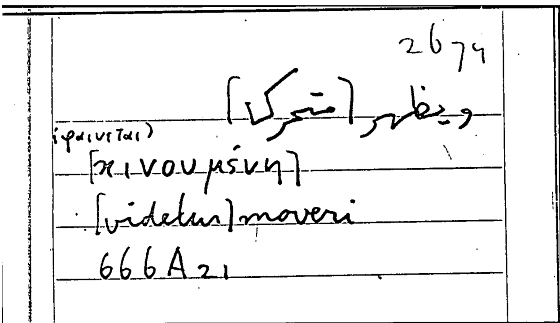 2674
ويظهر [متحرك]
(φαινεται)
[κινουμένη]
[videtur] moveri
666A21